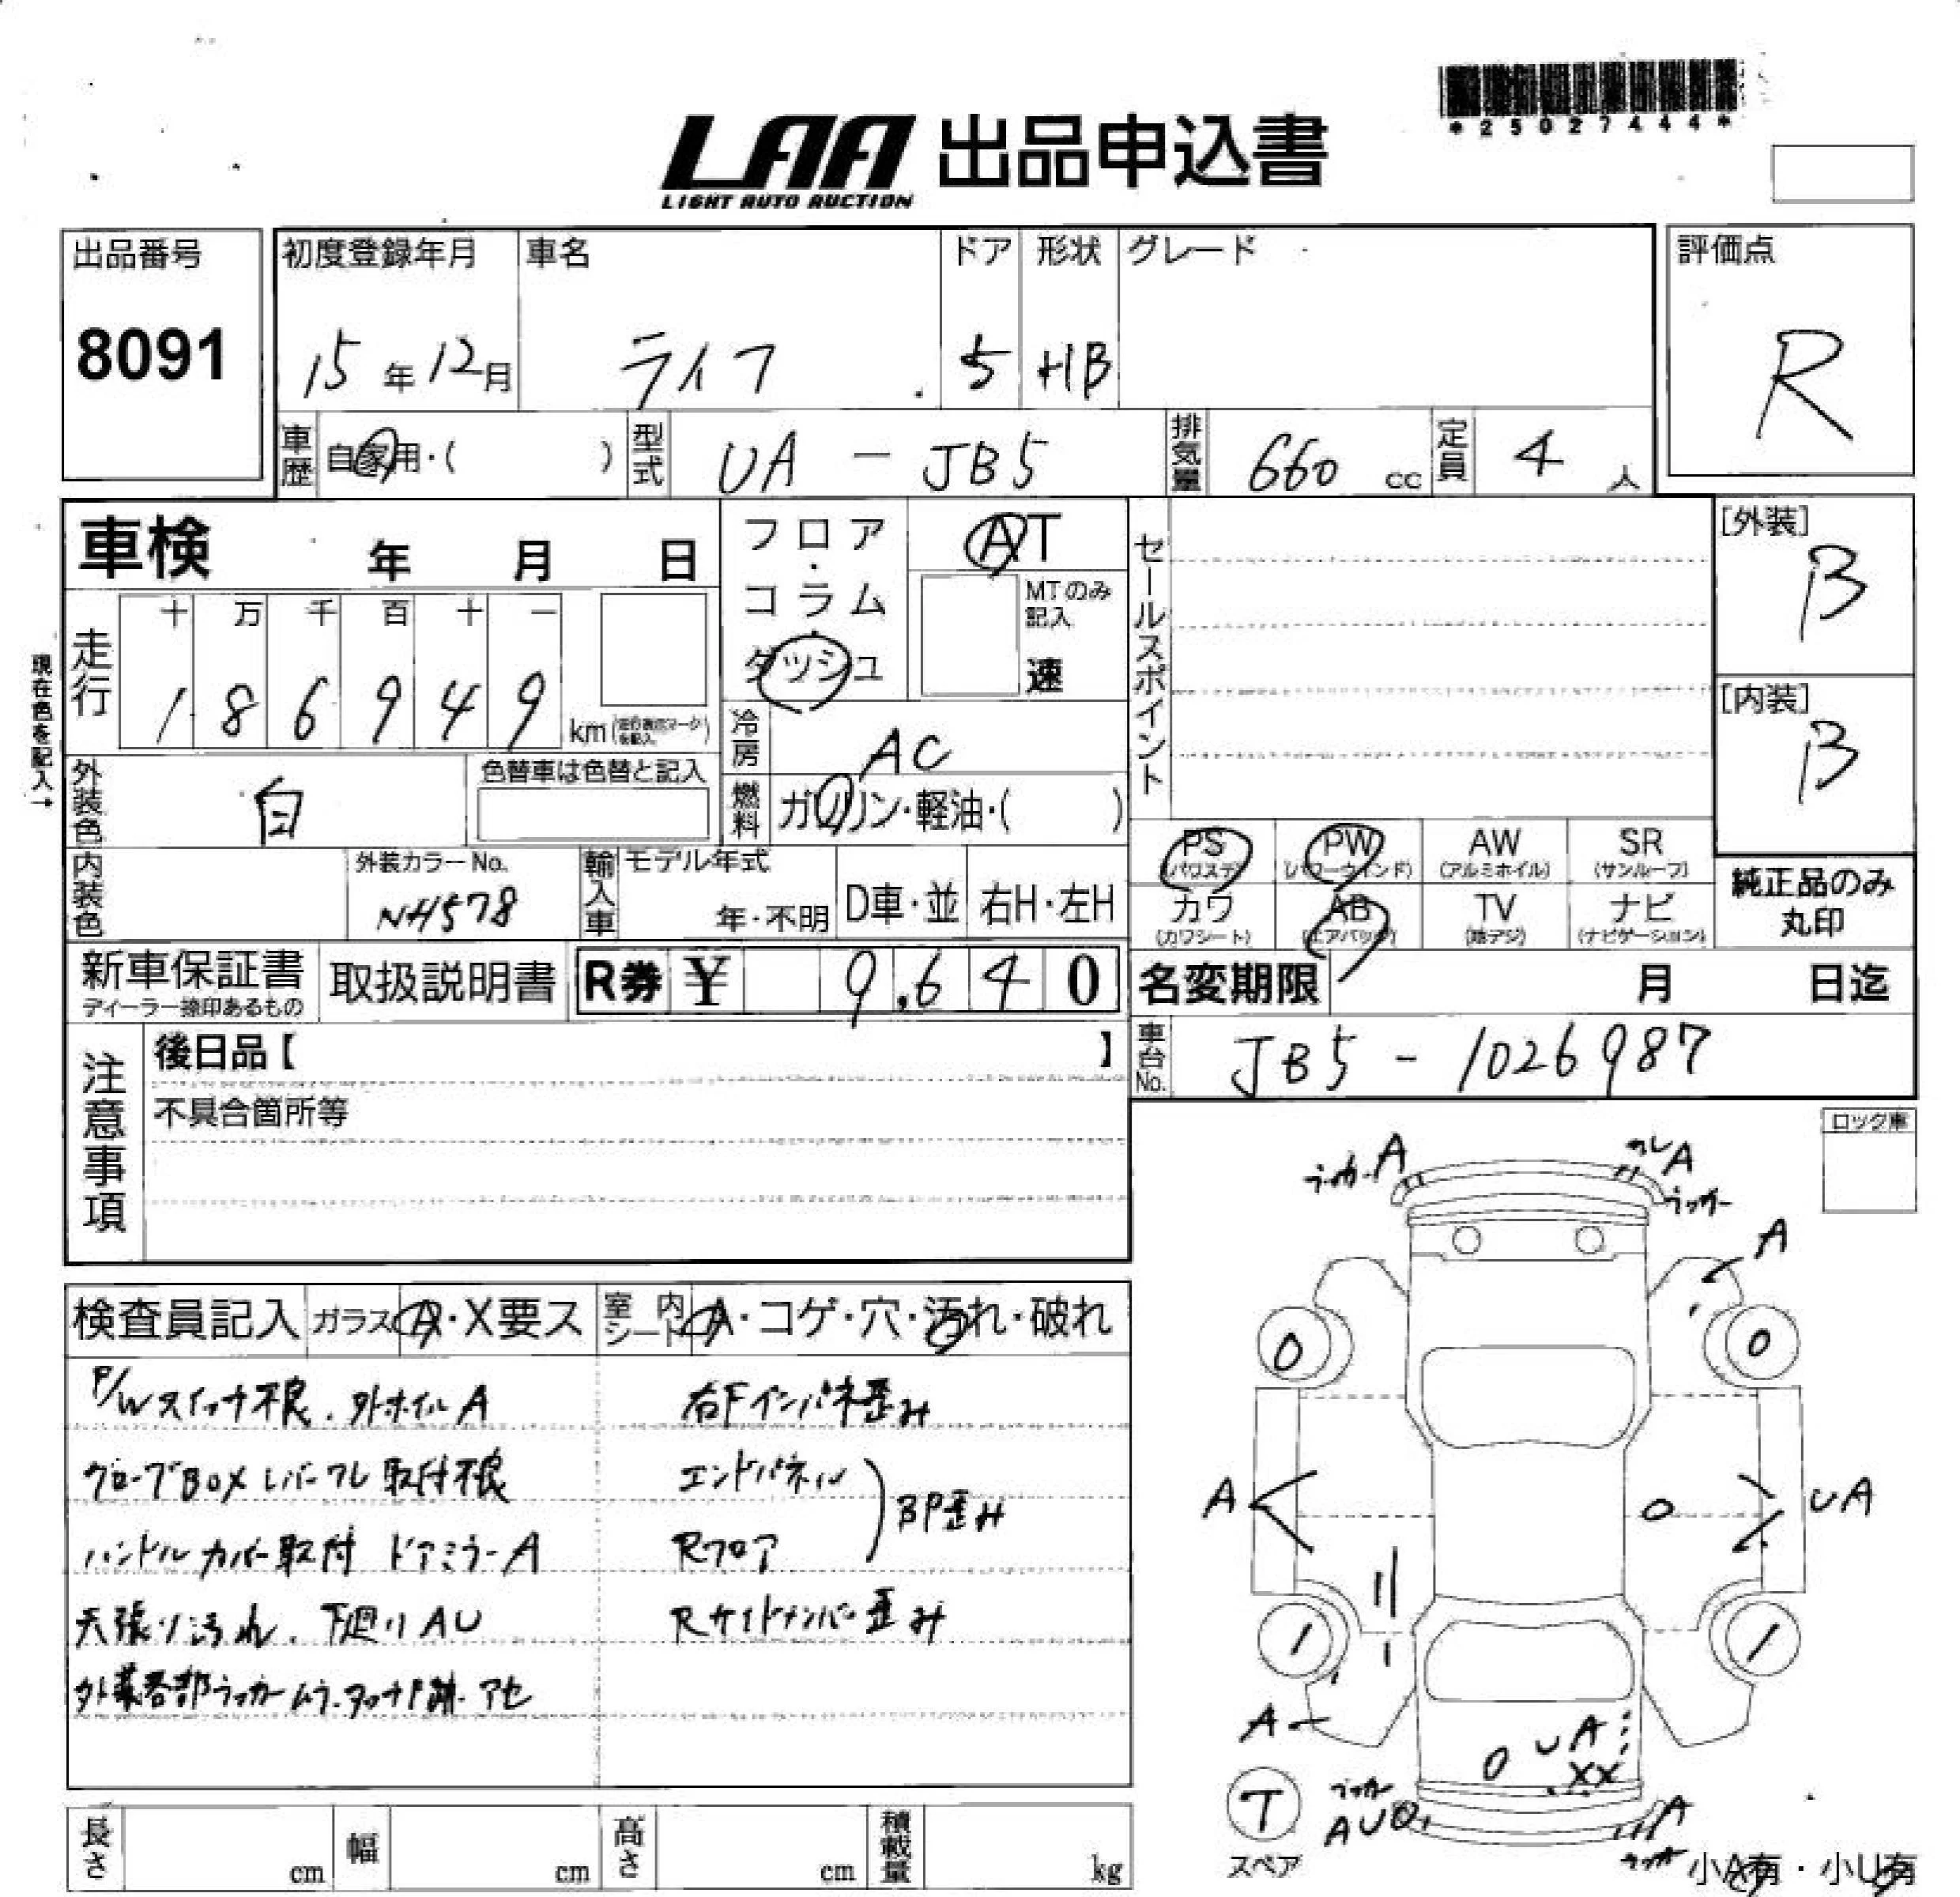 *25027444*
LAA 出品申込書
LIGHT AUTO AUCTION
出品番号 初度登録年月 車名 ドア 形状 グレード 評価点
8091 15年12月 ライフ 5 HB R
車歴 自家用・( ) 型式 UA - JB5 排気量 660 cc 定員 4 人
車検 年 月 日 フロア・コラム・ダッシュ AT セールスポイント [外装] B
MTのみ記入 速
現在色を記入→
走行 十 万 千 百 十 一
1 8 6 9 4 9 km
[内装] B
冷房 AC
外装色 白 色替車は色替と記入 燃料 ガソリン・軽油・( )
PS (パワステ) PW (パワーウインド) AW (アルミホイル) SR (サンルーフ)
内装色 外装カラーNo. NH578 輸入車 モデル年式 年・不明 D車・並 右H・左H
カワ (カワシート) AB (エアバッグ) TV (地デジ) ナビ (ナビゲーション)
純正品のみ丸印
新車保証書 ディーラー捺印あるもの 取扱説明書 R券 ¥ 9,640 名変期限 月 日迄
注意事項 後日品【 】 車台No. JB5 - 1026987
不具合箇所等
ロック車
ラッカー A カレ A
ラッカー
A
検査員記入 ガラス A・X要ス 室内シート A・コゲ・穴・汚れ・破れ
0 0
P/Wスイッチ不良. 外ホイルA 右Fインパネ歪み
グローブBOXレバーワレ 取付不良 エンドパネル
BP歪み
A UA
0
ハンドルカバー取付 ドアミラーA Rフロア
天張り汚れ. 下廻りAU Rサイドメンバー歪み
外装各部ラッカームラ.タッチP跡.アセ
A
0 UA
XX
T ラッカー
AU0 A
スペア ラッカー 小A有・小U有
長さ cm 幅 cm 高さ cm 積載量 kg